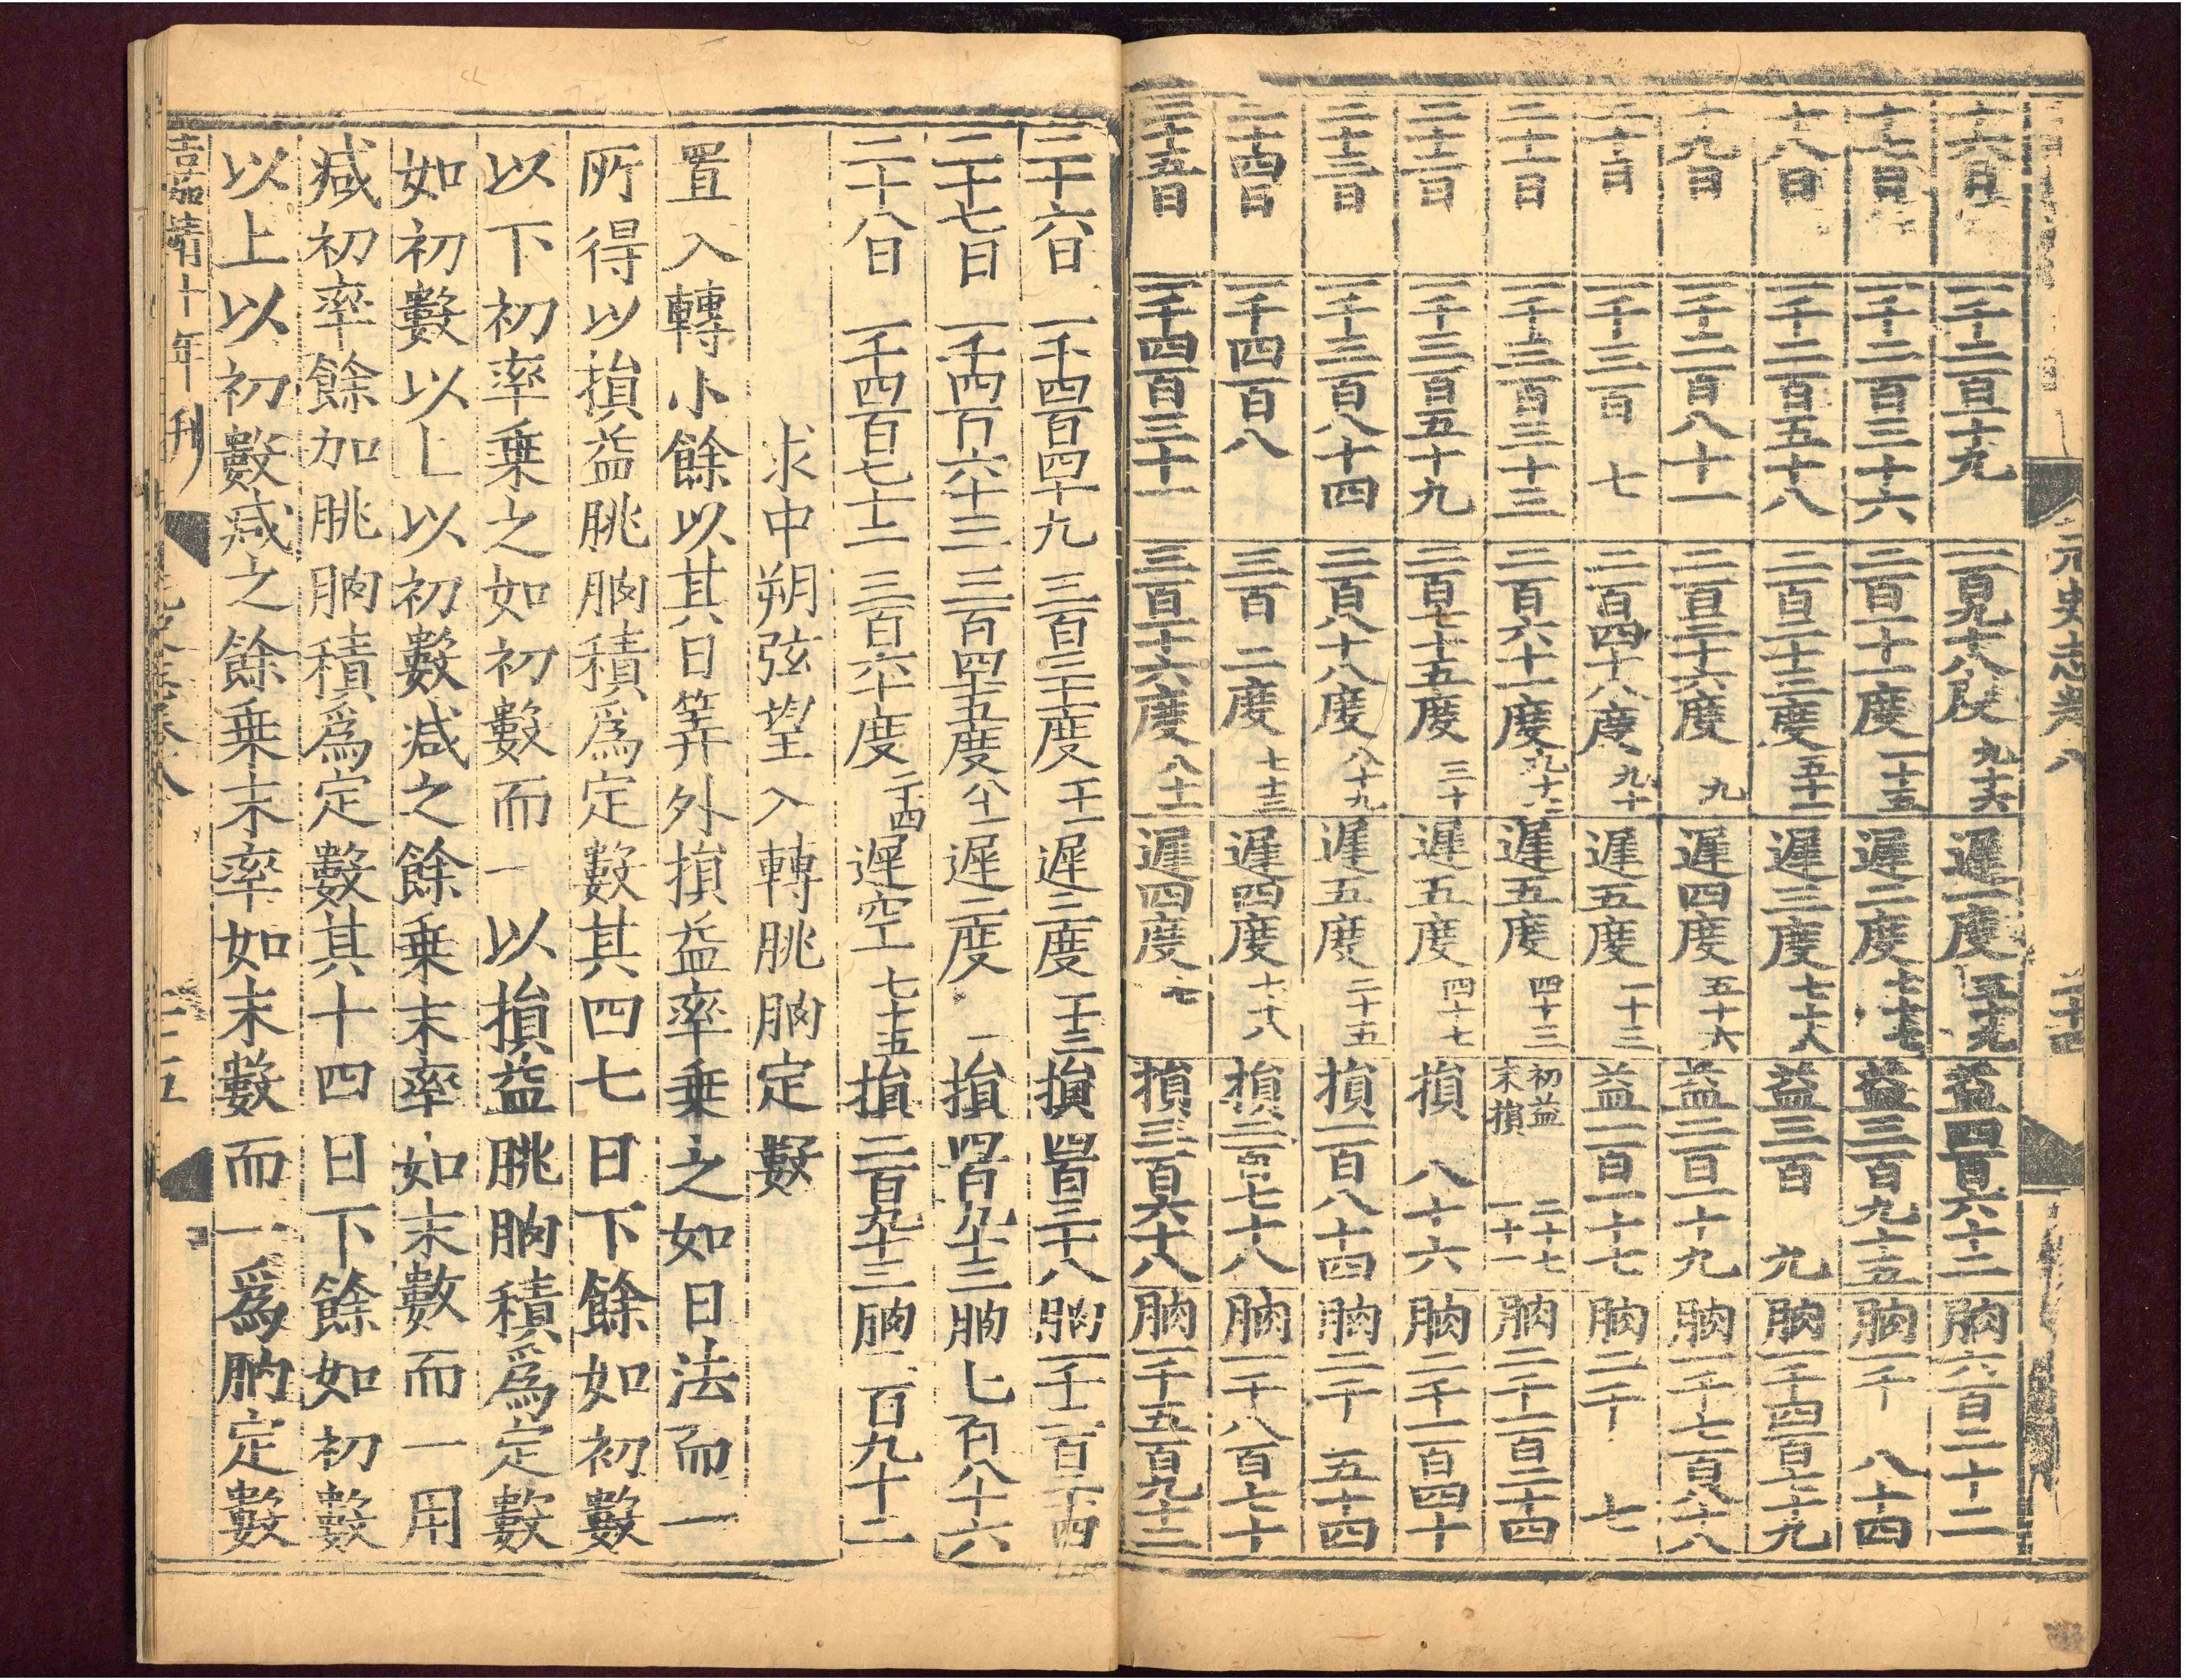 元史志卷八
二十四
十六日 一千二百一十九 一百九十八度九十六 遲一度五十九 益四百六十二 朒六百二十二
十七日 一千二百三十六 二百一十一度一十五 遲二度七十七 益三百九十五 朒一千八十四
十八日 一千二百五十八 二百二十三度五十一 遲三度七十六 益三百九 朒一千四百七十九
十九日 一千二百八十一 二百三十六度九 遲四度五十六 益二百一十九 朒一千七百八十八
二十日 一千三百七 二百四十八度九十 遲五度一十三 益一百一十七 朒二千七
二十一日 一千三百三十三 二百六十一度九十七 遲五度四十三 初益二十七末損一十一 朒二千一百二十四
二十二日 一千三百五十九 二百七十五度三十 遲五度四十七 損八十六 朒二千一百四十
二十三日 一千三百八十四 二百八十八度八十九 遲五度二十五 損一百八十四 朒二千五十四
二十四日 一千四百八 三百二度七十三 遲四度七十八 損二百七十八 朒一千八百七十
二十五日 一千四百三十一 三百一十六度八十一 遲四度七 損三百六十八 朒一千五百九十二
二十六日 一千四百四十九 三百三十一度一十二 遲三度一十三 損四百三十八 朒一千二百二十四
二十七日 一千四百六十三 三百四十五度六十一 遲二度一 損四百九十三 朒七百八十六
二十八日 一千四百七十二 三百六十度二十四 遲空 七十五 損二百九十三 朒二百九十二
求中朔弦望入轉朓朒定數
置入轉小餘以其日筭外損益率乗之如日法而一
所得以損益朓朒積爲定數其四七日下餘如初數
以下初率乗之如初數而一以損益朓朒積爲定數
如初數以上以初數减之餘乗末率如末數而一用
减初率餘加朓朒積爲定數其十四日下餘如初數
以上以初數减之餘乗末率如末數而一爲朒定數
嘉靖十年刊
二十五